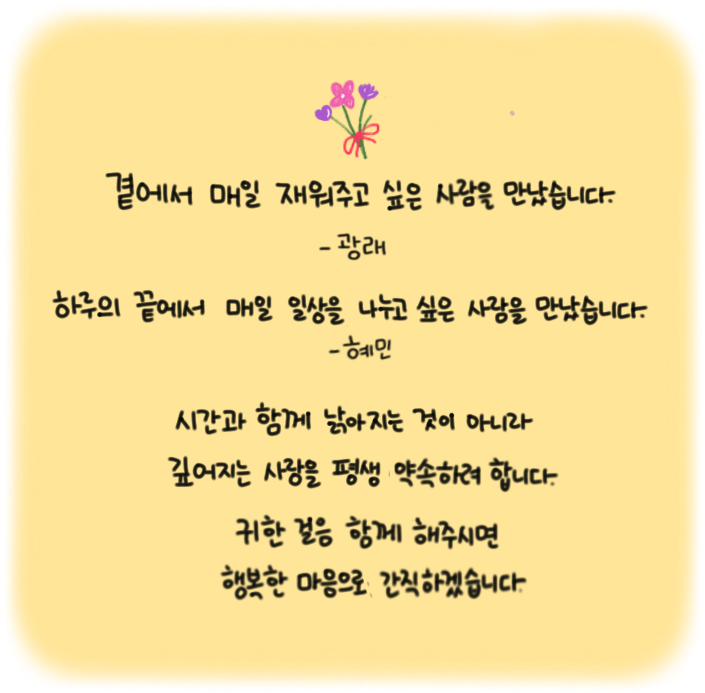 곁에서 매일 재워주고 싶은 사람을 만났습니다.
- 광래
하루의 끝에서 매일 일상을 나누고 싶은 사람을 만났습니다.
- 혜민
시간과 함께 낡아지는 것이 아니라
깊어지는 사랑을 평생 약속하려 합니다.
귀한 걸음 함께 해주시면
행복한 마음으로 간직하겠습니다.